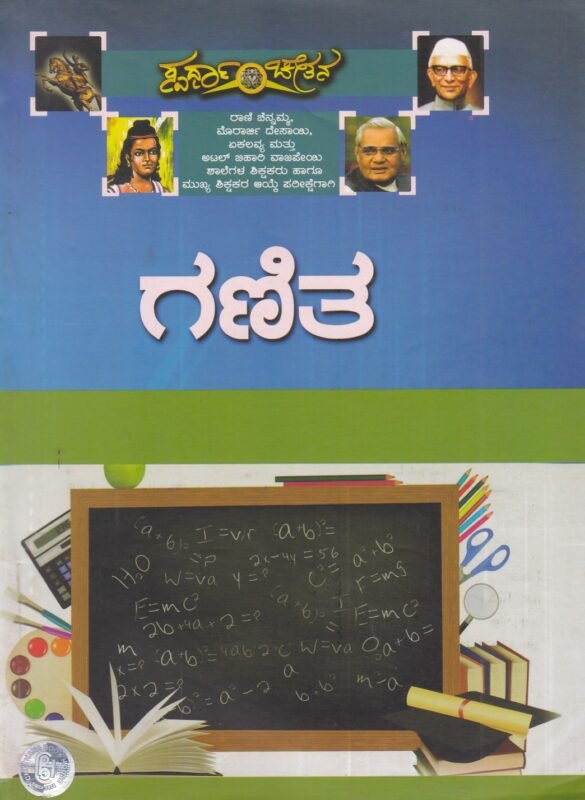 ಸ್ಪರ್ಧಾ ಚೇತನ
ರಾಣಿ ಚೆನ್ನಮ್ಮ,
ಮೊರಾರ್ಜಿ ದೇಸಾಯಿ,
ಏಕಲವ್ಯ ಮತ್ತು
ಅಟಲ್ ಬಿಹಾರಿ ವಾಜಪೇಯಿ
ಶಾಲೆಗಳ ಶಿಕ್ಷಕರು ಹಾಗೂ
ಮುಖ್ಯ ಶಿಕ್ಷಕರ ಆಯ್ಕೆ ಪರೀಕ್ಷೆಗಾಗಿ
ಗಣಿತ
I=v/r (a+b)²=
H₂O 2x-4y=56 a²+b²
W=va y=? C²= F=mg
E=mc² E=mc²
2b+4a+2=?
m (a+b)²=4ab·2·c W=va
x=? a
2x2=? b²=a²-2 b+b² m=a